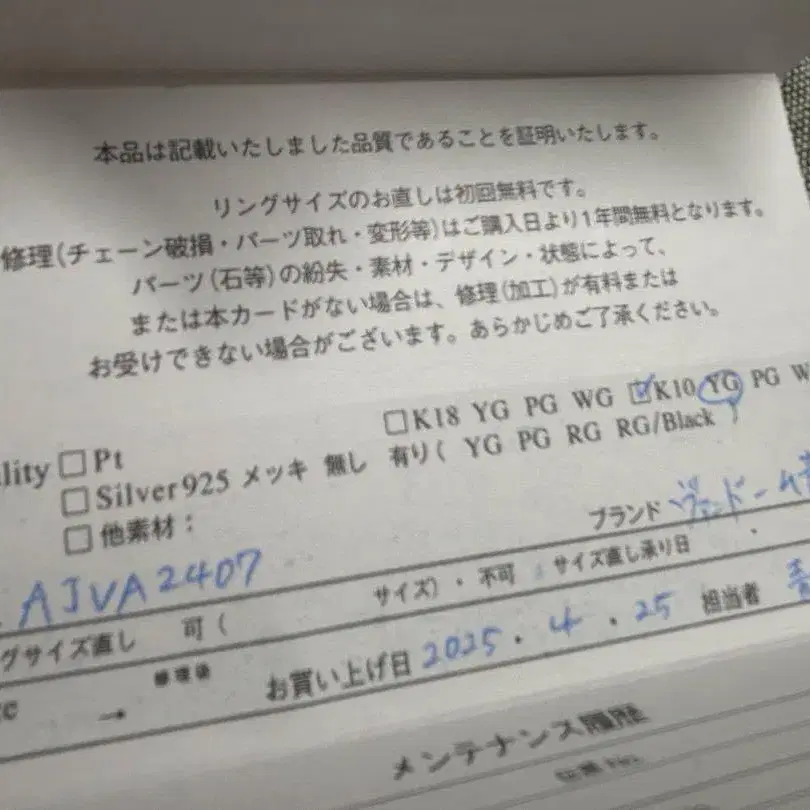 本品は記載いたしました品質であることを証明いたします。
リングサイズのお直しは初回無料です。
修理(チェーン破損・パーツ取れ・変形等)はご購入日より1年間無料となります。
パーツ(石等)の紛失・素材・デザイン・状態によって、
または本カードがない場合は、修理(加工)が有料または
お受けできない場合がございます。あらかじめご了承ください。
lity □Pt □K18 YG PG WG ☑K10 YG PG W
□Silver925 メッキ 無し 有り( YG PG RG RG/Black )
□他素材:
AJVA2407 ブランド ヴァンドーム青
グサイズ直し 可( サイズ)・不可 サイズ直し承り日
修理後 お買い上げ日 2025.4.25 担当者
→
メンテナンス履歴